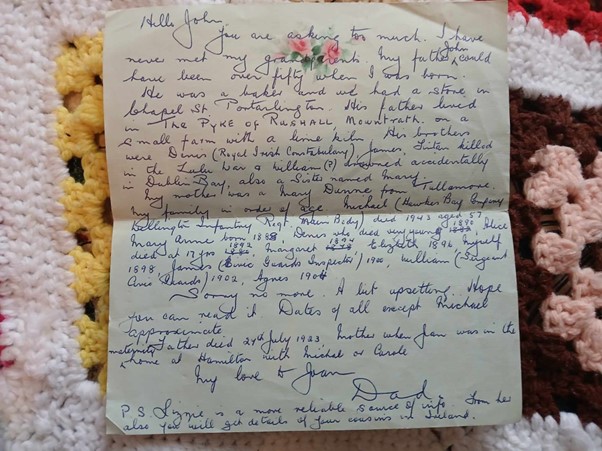 Hello John
You are asking too much. I have
never met my grandparents. My father John could
have been over fifty when I was born.
He was a baker and we had a store in
Chapel St. Portarlington. His father lived
in The PYKE OF RUSHALL MOUNTRATH. on a
small farm with a lime kiln. His brothers
were Denis (Royal Irish Constabulary) James, killed
in the Zulu War & William (?) drowned accidentally
in Dublin Bay, also a Sister named Mary.
My mother was a Mary Dunne from Tullamore.
My family in order of age Michael (Hawkes Bay Company
Wellington Infantry Regt. Main Body) died 1943 aged 57
Mary Anne born Denis who died very young 1890 Alice
died at 17 yrs 1892 Margaret 1894 Elizabeth 1896 Myself
1898, James (Civic Guards Inspector) 1900, William (Sargeant
Civic Guards) 1902, Agnes 1904
Sorry no more. A bit upsetting. Hope
you can read it. Dates of all except Michael
approximate.
Father died 24th July 1923 Mother when Joan was in the
maternity home at Hamilton with Michel or Carole
My love to Joan
Dad
P S Lizzie is a more reliable source of info. From her
also you will get details of your cousins in Ireland.